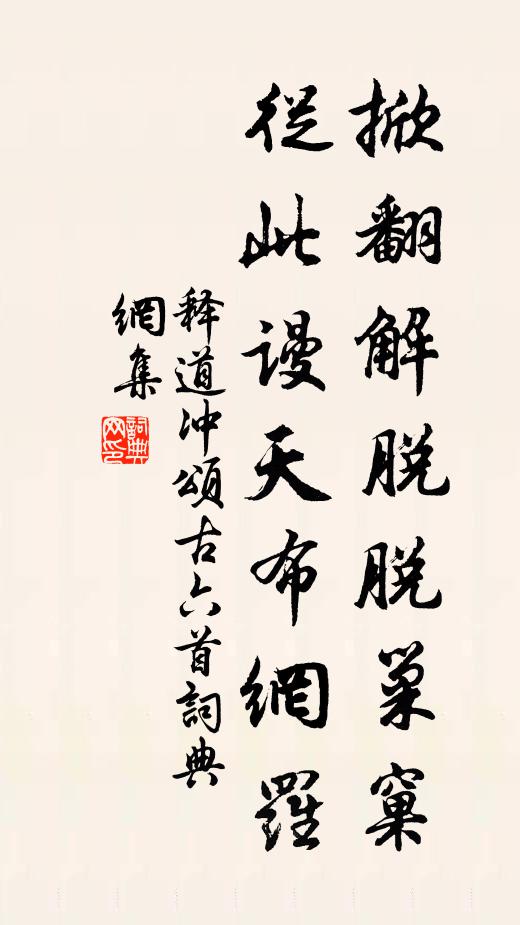 掀翻解脱脱巢窠
從此谩天布網羅
释道冲頌古六首詞典
網集
詞典网印